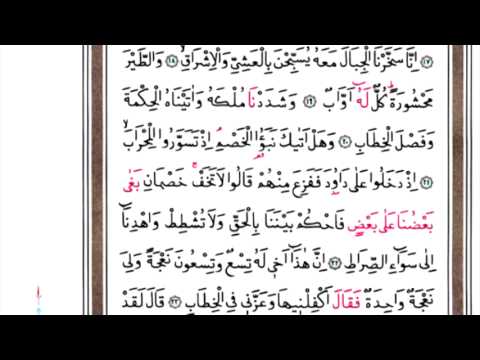 ﴿١٧﴾ اِنَّا سَخَّرْنَا الْجِبَالَ مَعَهُ يُسَبِّحْنَ بِالْعَشِيِّ وَالْاِشْرَاقِ ﴿١٨﴾ وَالطَّيْرَ
مَحْشُورَةً كُلٌّ لَهُ اَوَّابٌ ﴿١٩﴾ وَشَدَدْنَا مُلْكَهُ وَاٰتَيْنَاهُ الْحِكْمَةَ
وَفَصْلَ الْخِطَابِ ﴿٢٠﴾ وَهَلْ اَتٰيكَ نَبَؤُا الْخَصْمِ اِذْ تَسَوَّرُوا الْمِحْرَابَ
﴿٢١﴾ اِذْ دَخَلُوا عَلٰى دَاوُدَ فَفَزِعَ مِنْهُمْ قَالُوا لَا تَخَفْ خَصْمَانِ بَغٰى
بَعْضُنَا عَلٰى بَعْضٍ فَاحْكُمْ بَيْنَنَا بِالْحَقِّ وَلَا تُشْطِطْ وَاهْدِنَا
اِلٰى سَوَاءِ الصِّرَاطِ ﴿٢٢﴾ اِنَّ هٰذَا اَخٖي لَهُ تِسْعٌ وَتِسْعُونَ نَعْجَةً وَلِيَ
نَعْجَةٌ وَاحِدَةٌ فَقَالَ اَكْفِلْنٖيهَا وَعَزَّنٖي فِي الْخِطَابِ ﴿٢٣﴾ قَالَ لَقَدْ